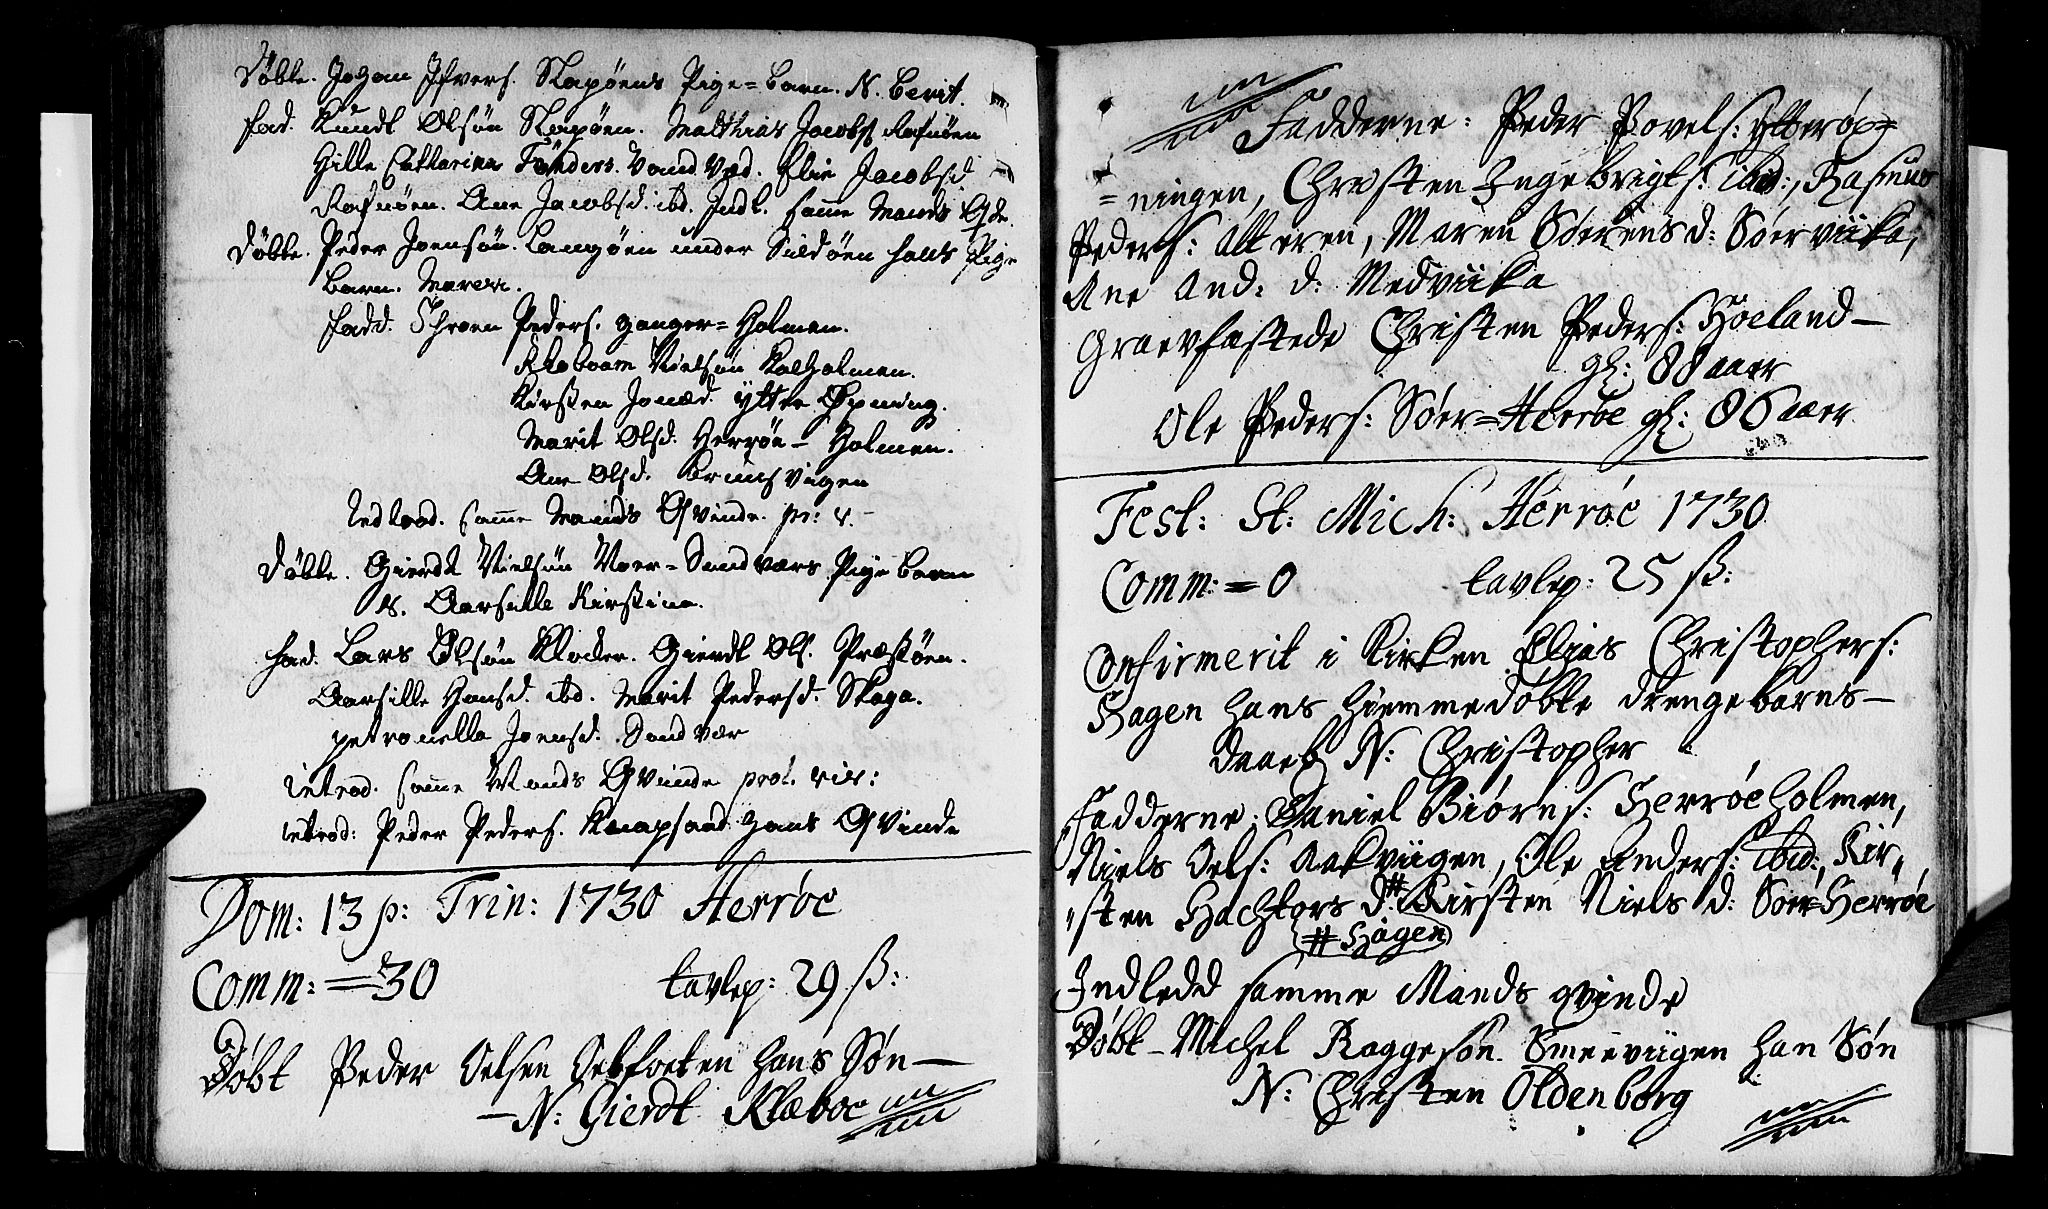 Döbte. Johan Ifvers. Slapöens Pige=barn. N. Berit.
fad. Knudt Olsön Slapöen. Matthias Jacobs. Rafnöen
Hille Catharina Tönders. Vandved. Elen Jacobsd.
Rafnöen. Ane Jacobsd. ibd. Indl. samme Mands Qde.
Döbte. Peder Joensön. Langöen under Sildöen hans Pige
barn. Maren.
fadd. Thron Peders. ganger=Holmen.
Roboam Nielsön Kalholmen.
Kirsten Jonæd. ytter Öpning.
Marit Olsd. Herröe-Holmen.
Ane Olsd. Brunsvigen
Introd. samme Mands Qvinde. pr: v.
Döbte. Gierdt Nielsön Noer=Sandværs Pige barn
N. Aarsille Kirstina.
fad. Lars Olsön Klocker. Gierdt Ols. Præstöen.
Aarsille Hansd. ibd. Marit Pedersd. Skaga.
petronella Joensd. Sandvær
introd. samme Mands Qvinde prot.
introd: Peder Peders. Knapsand hans Qvinde
Dom: 13 p: Trin: 1730 Herröe
Comm: = 30 tavlep: 29 ß:
Döbt Peder Oelsen Oebfoeten hans Søn —
— N: Gierdt Klæboe
Fadderne: Peder Povels: ytteröp=
=ningen, Christen Ingebrigts: ibid:, Rasmus
Peders: Alteren, Maren Søerensd: Søerviika,
Ane And: d: Medviika
Graevfastede Christen Peders: Hoeland —
gl: 88 aaer
Ole Peders: Søer=Herröe gl: 86 aaer
Fest: St: Mich: Herröe 1730
Comm: = 0 tavlep: 25 ß:
Confirmerit i Kirken Elias Christophers:
Hagen hans hiemmedöbte drengebarns —
daab N: Christopher
Fadderne: Daniel Biörns: Herröeholmen,
Niels Oels: Aakviigen, Ole Anders: ibid:, Kir"
"sten Hachtors d:# Kirsten Niels d: Søer=Herröe
# Hagen
Indledd samme Mands qvinde
Döbt — Michel Raggesön Smeeviigen han Søn
N: Christen Oldenborg